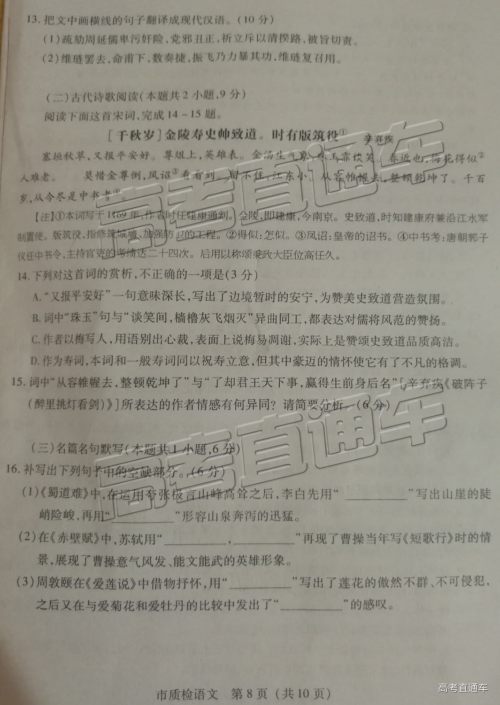 13.把文中画横线的句子翻译成现代汉语。(10分)
(1)疏劾周延儒卑污奸险,党邪丑正,祈立斥以清揆路,被旨切责。
(2)维琏罢去,命甫下,数奏捷,振飞乃力暴其功,维琏复召用。
(二)古代诗歌阅读(本题共2小题,9分)
阅读下面这首宋词,完成14~15题。
[千秋岁]金陵寿史帅致道。时有版筑役①
辛弃疾
塞垣秋草,又报平安好。尊俎上,英雄表。金汤生气象,珠玉霏谈笑。春近也,梅花得似②
人难老。 莫惜金尊倒,凤诏③看看到。留不住,江东小。从容帷幄去,整顿乾坤了。千百
岁,从今尽是中书考④。
[注]①本词写于1169年,作者时任建康通判。金陵,即建康,今南京。史致道,时知建康府兼沿江水军
制置使。版筑役,指修建城墙、加强防的工程。②得似:怎似。③凤诏:皇帝的诏书。④中书考:唐朝郭子
仪任中书令,主持官吏的考绩达二十四次。后用以称颂秉政大臣位高任久。
14.下列对这首词的赏析,不正确的一项是(3分)
A.“又报平安好”一句意味深长,写出了边境暂时的安宁,为赞美史致道营造氛围。
B.词中“珠玉”句与“谈笑间,樯橹灰飞烟灭”异曲同工,都表达对儒将风范的赞扬。
C.作者以梅写人,用语别出心裁,表面上说梅易凋谢,实际上是赞颂史致道品质高洁。
D.作为寿词,本词和一般寿词同以祝寿立意,但其中豪迈的情怀使它有了不凡的格调。
15.词中“从容帷幄去,整顿乾坤了”与“了却君王天下事,赢得生前身后名”[辛弃疾《破阵子
(醉里挑灯看剑)》]所表达的作者情感有何异同?请简要分析。(6分)
(三)名篇名句默写(本题共1小题,6分)
16.补写出下列句子中的空缺部分。(6分)
(1)《蜀道难》中,在运用夸张极言山峰高耸之后,李白先用“__________”写出山崖的陡
峭险峻,再用“__________”形容山泉奔泻的迅猛。
(2)在《赤壁赋》中,苏轼用“__________,__________”再现了曹操当年写《短歌行》时的情
景,展现了曹操意气风发、能文能武的英雄形象。
(3)周敦颐在《爱莲说》中借物抒怀,用“__________”写出了莲花的傲然不群、不可侵犯,
之后又在与爱菊花和爱牡丹的比较中发出了“__________”的感叹。
市质检语文 第8页(共10页)
高考直通车
高考直通车
高考直通车